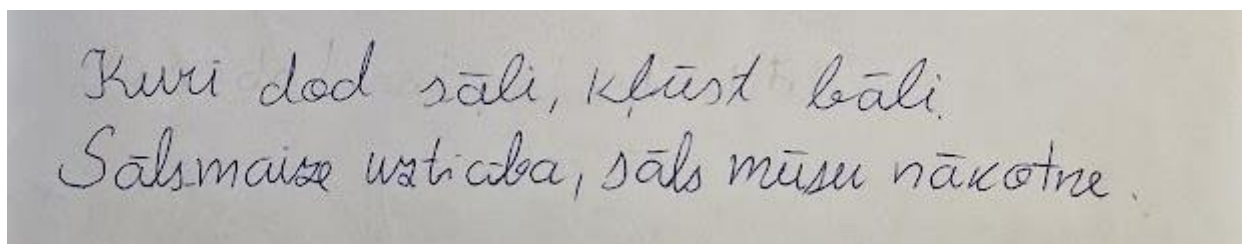 Kuri dod sāli, kļūst bāli.
Sālsmaize uzticība, sāls mūsu nākotne.